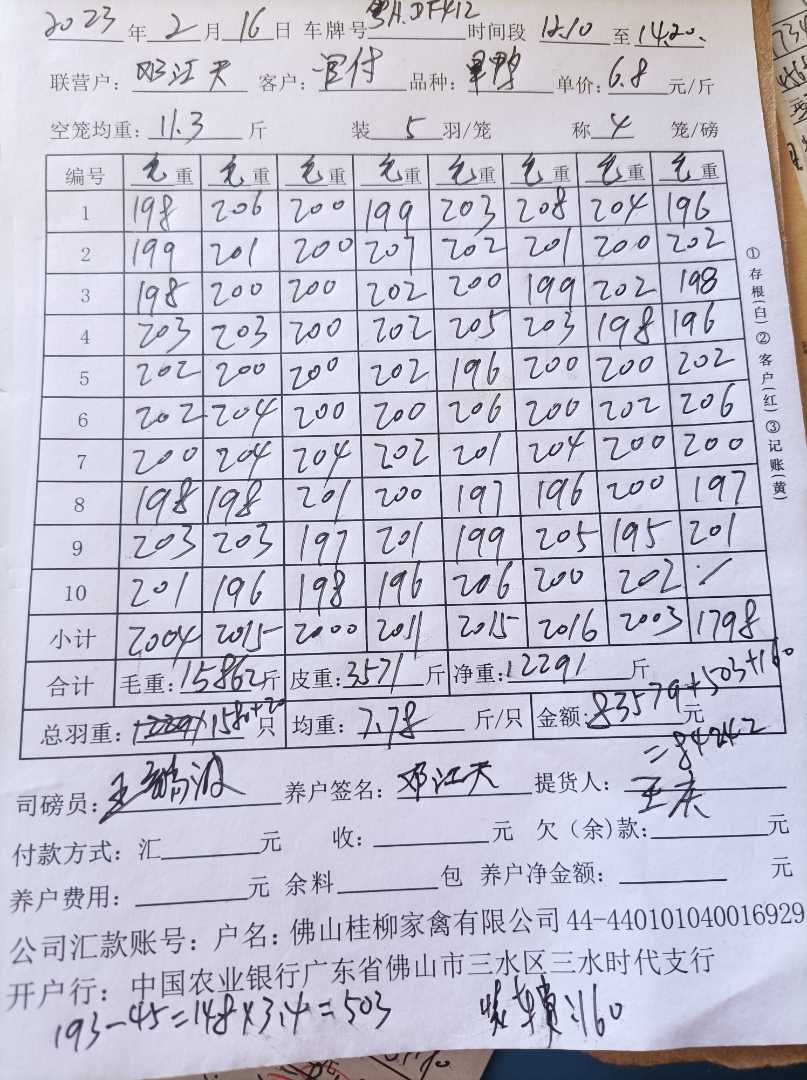 2023年2月16日 车牌号 粤H.DF412 时间段 12.10 至 14.20.
联营户：邓江天 客户：宜付 品种：旱鸭 单价：6.8元/斤
空笼均重：11.3斤 装5羽/笼 称4笼/磅
编号 毛重 毛重 毛重 毛重 毛重 毛重 毛重 毛重
1 198 206 200 199 203 208 204 196
2 199 201 200 207 202 201 200 202
3 198 200 200 202 200 199 202 198
4 203 203 200 202 205 203 198 196
5 202 200 200 202 196 200 200 202
6 202 204 200 200 206 200 202 206
7 200 204 204 202 201 204 200 200
8 198 198 201 200 197 196 200 197
9 203 203 197 201 199 205 195 201
10 201 196 198 196 206 200 202 /
小计 2004 2015 2000 2011 2015 2016 2003 1798
合计 毛重：15862斤 皮重：3571斤 净重：12291斤
总羽重：1580+20只 均重：7.78斤/只 金额：83579+503+160元
=84242
司磅员： 养户签名：邓江天 提货人：王庆
付款方式：汇 元 收： 元 欠（余）款： 元
养户费用： 元 余料 包 养户净金额： 元
公司汇款账号：户名：佛山桂柳家禽有限公司 44-440101040016929
开户行：中国农业银行广东省佛山市三水区三水时代支行
193-45=148×3.4=503 装车费：160
①存根(白)②客户(红)③记账(黄)